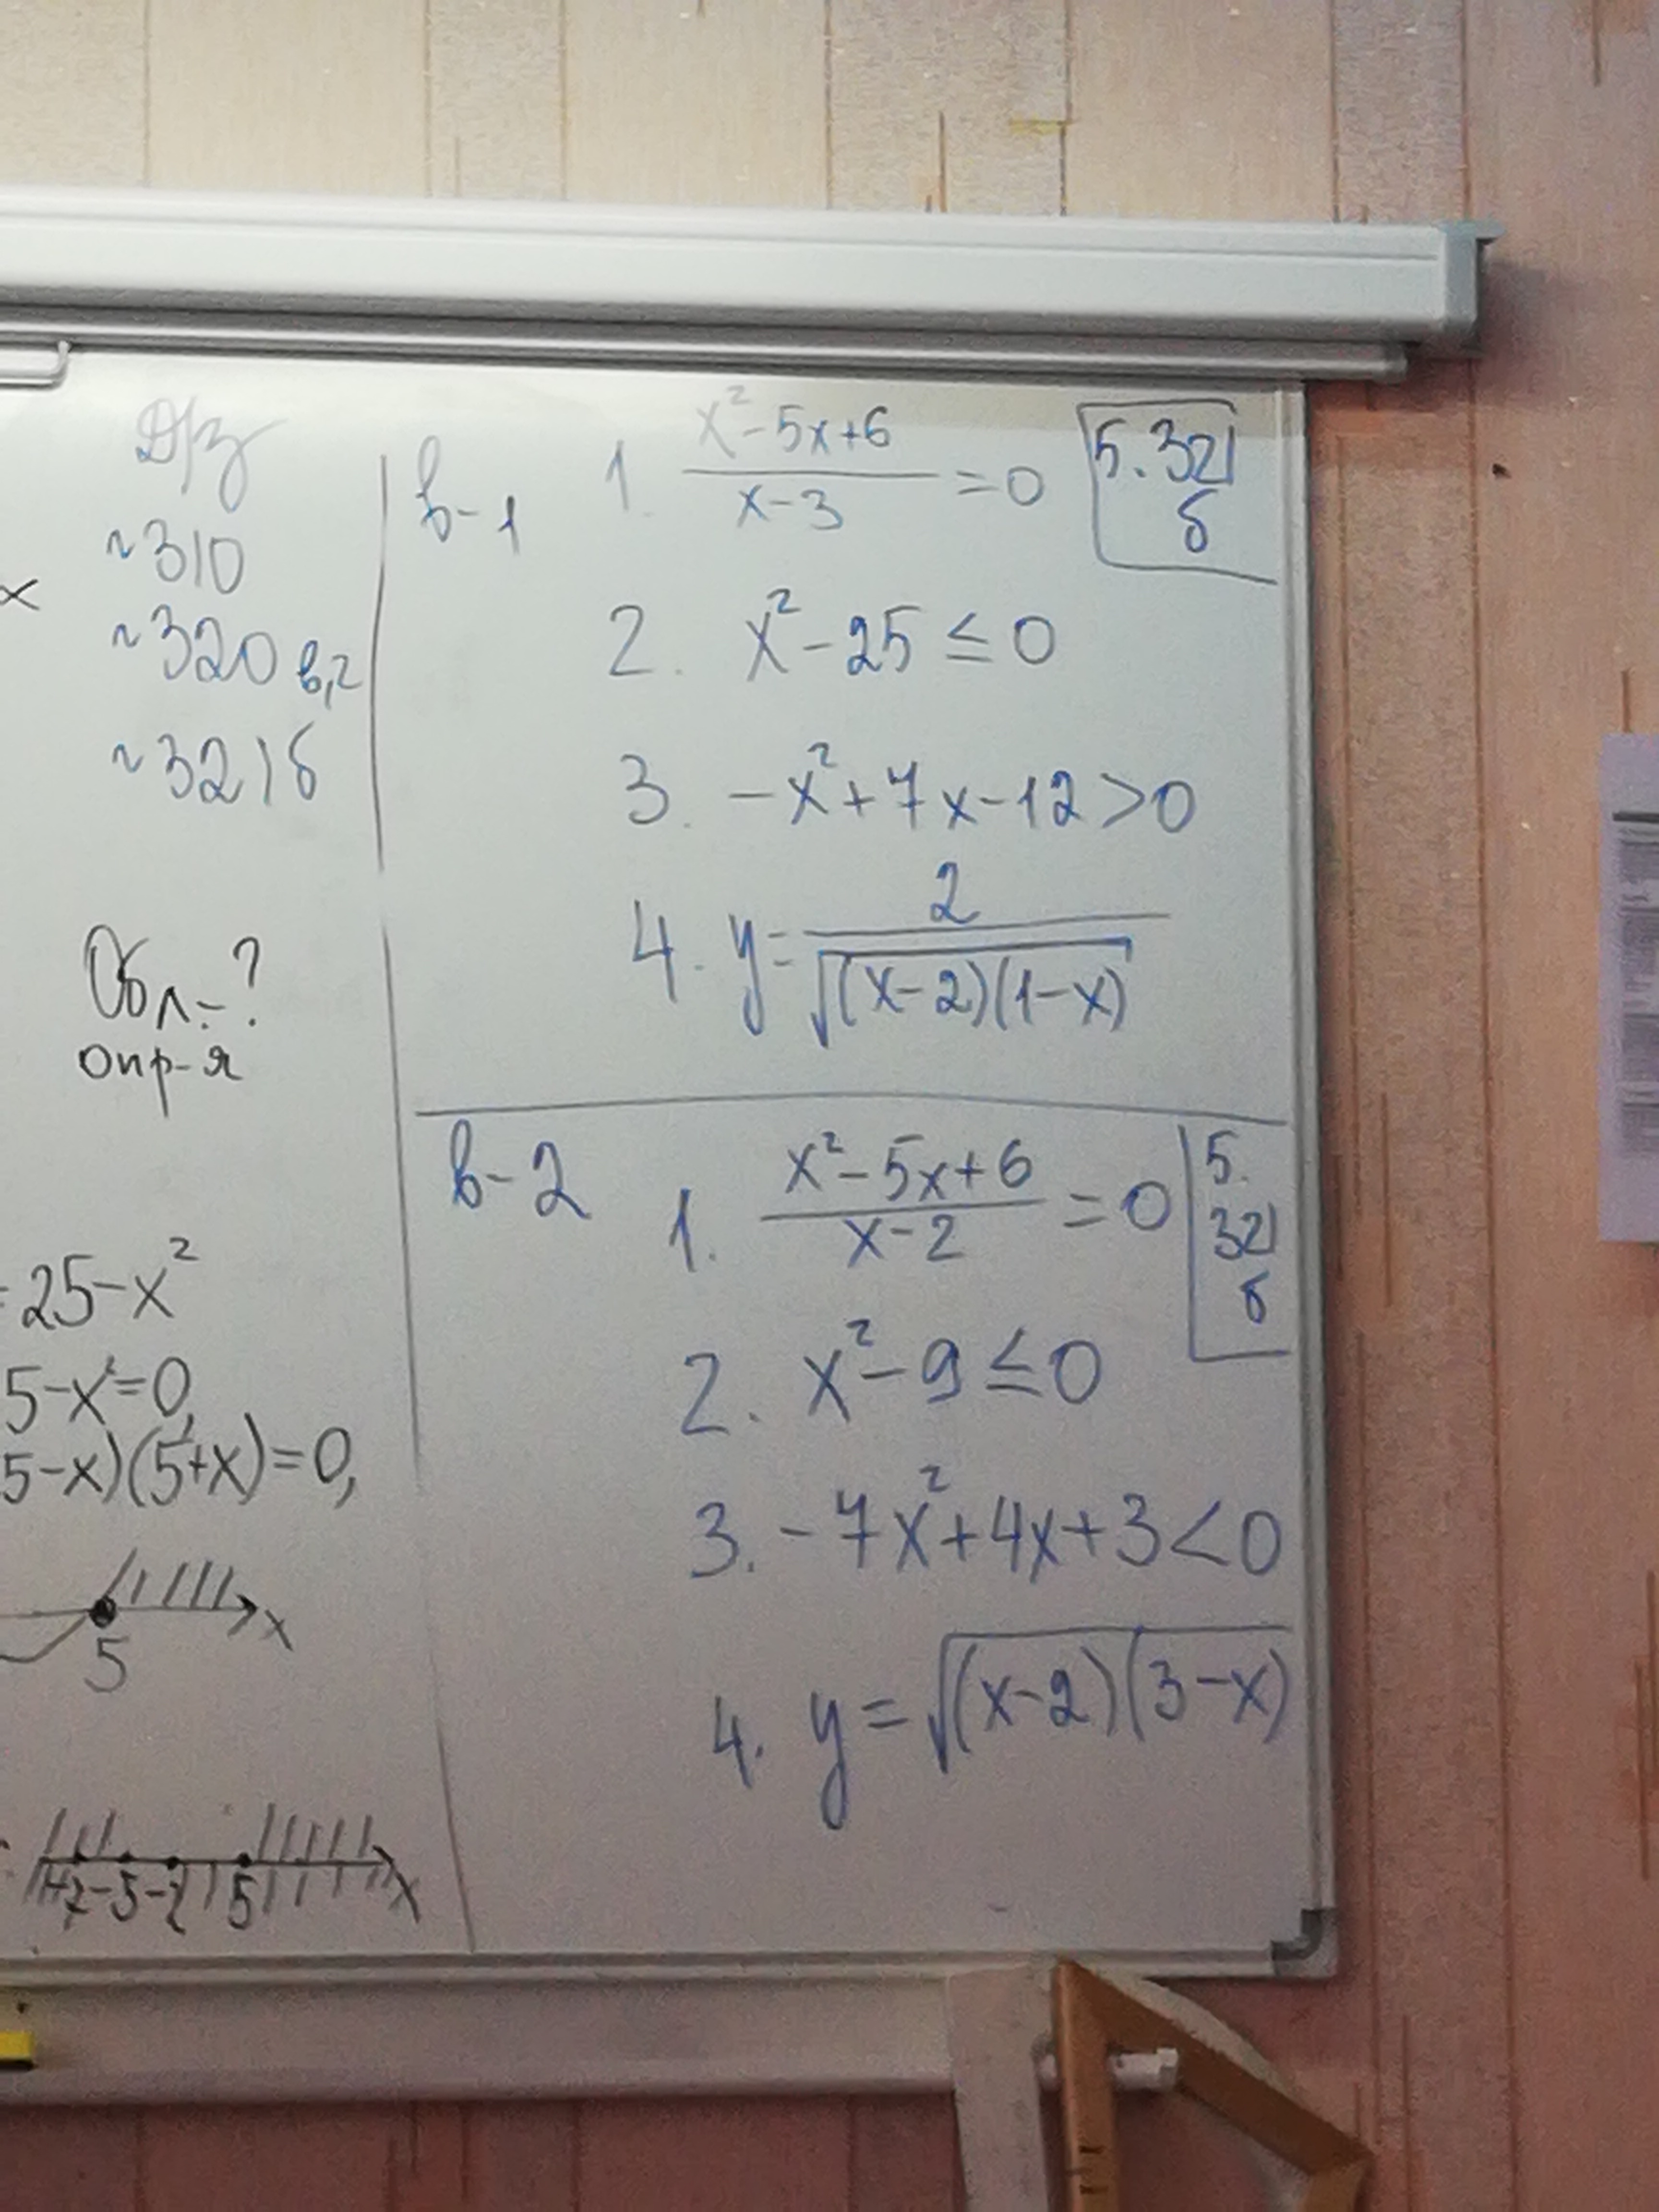 Д/з
~310
~320 в,г
~321б
x
Обл.-?
опр-я
25-x²
5-x²=0,
5-x)(5+x)=0,
5
x
5
x
в-1
1. (x²-5x+6)/(x-3) =0
5.321
б
2. x²-25≤0
3. -x²+7x-12>0
4. y=2/√((x-2)(1-x))
в-2
1. (x²-5x+6)/(x-2) =0
5.
321
б
2. x²-9≤0
3. -7x²+4x+3<0
4. y=√((x-2)(3-x))